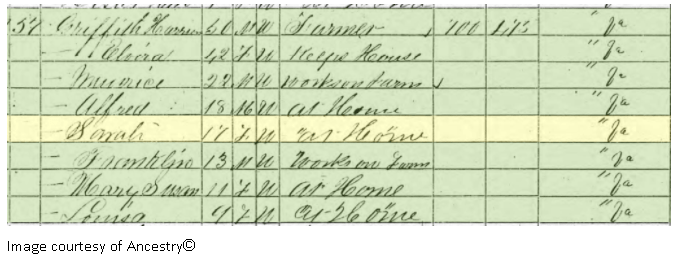 57 Griffith Harrison 50 M W Farmer 700 175 " Va
— Elvira 42 F W Keeps House " Va
— Maurice 22 M W Works on Farm " Va
— Alfred 18 M W At Home " Va
— Sarah 17 F W At Home " Va
— Franklin 13 M W Works on Farm " Va
— Mary Susan 11 F W At Home " Va
— Louisa 9 F W At Home " Va
Image courtesy of Ancestry©